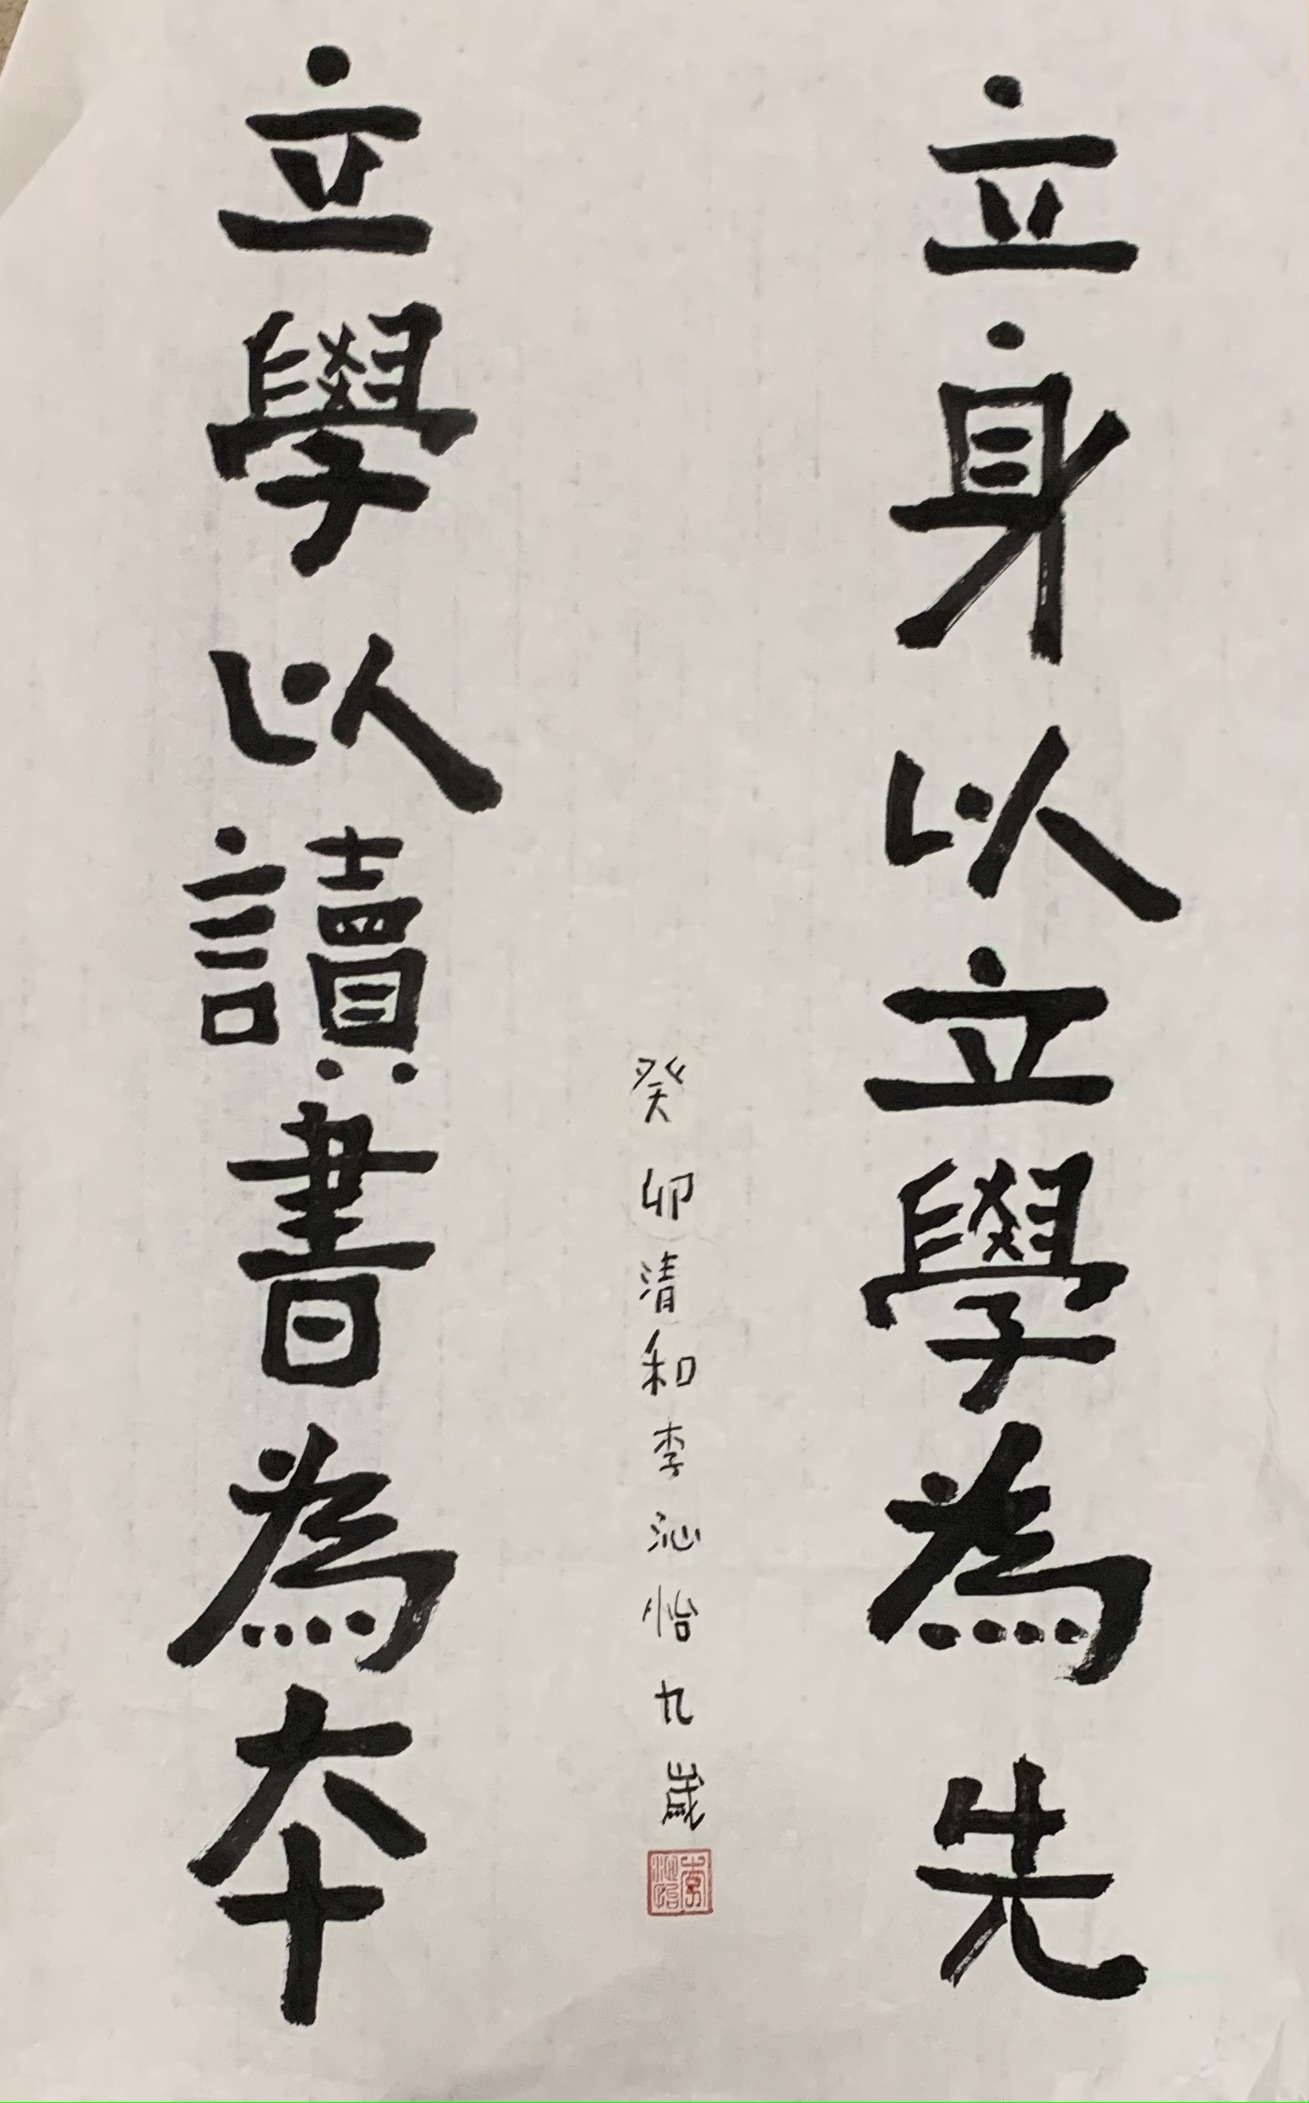 立身以立學為先
立學以讀書為本
癸卯清和李沁怡九歲
李沁怡